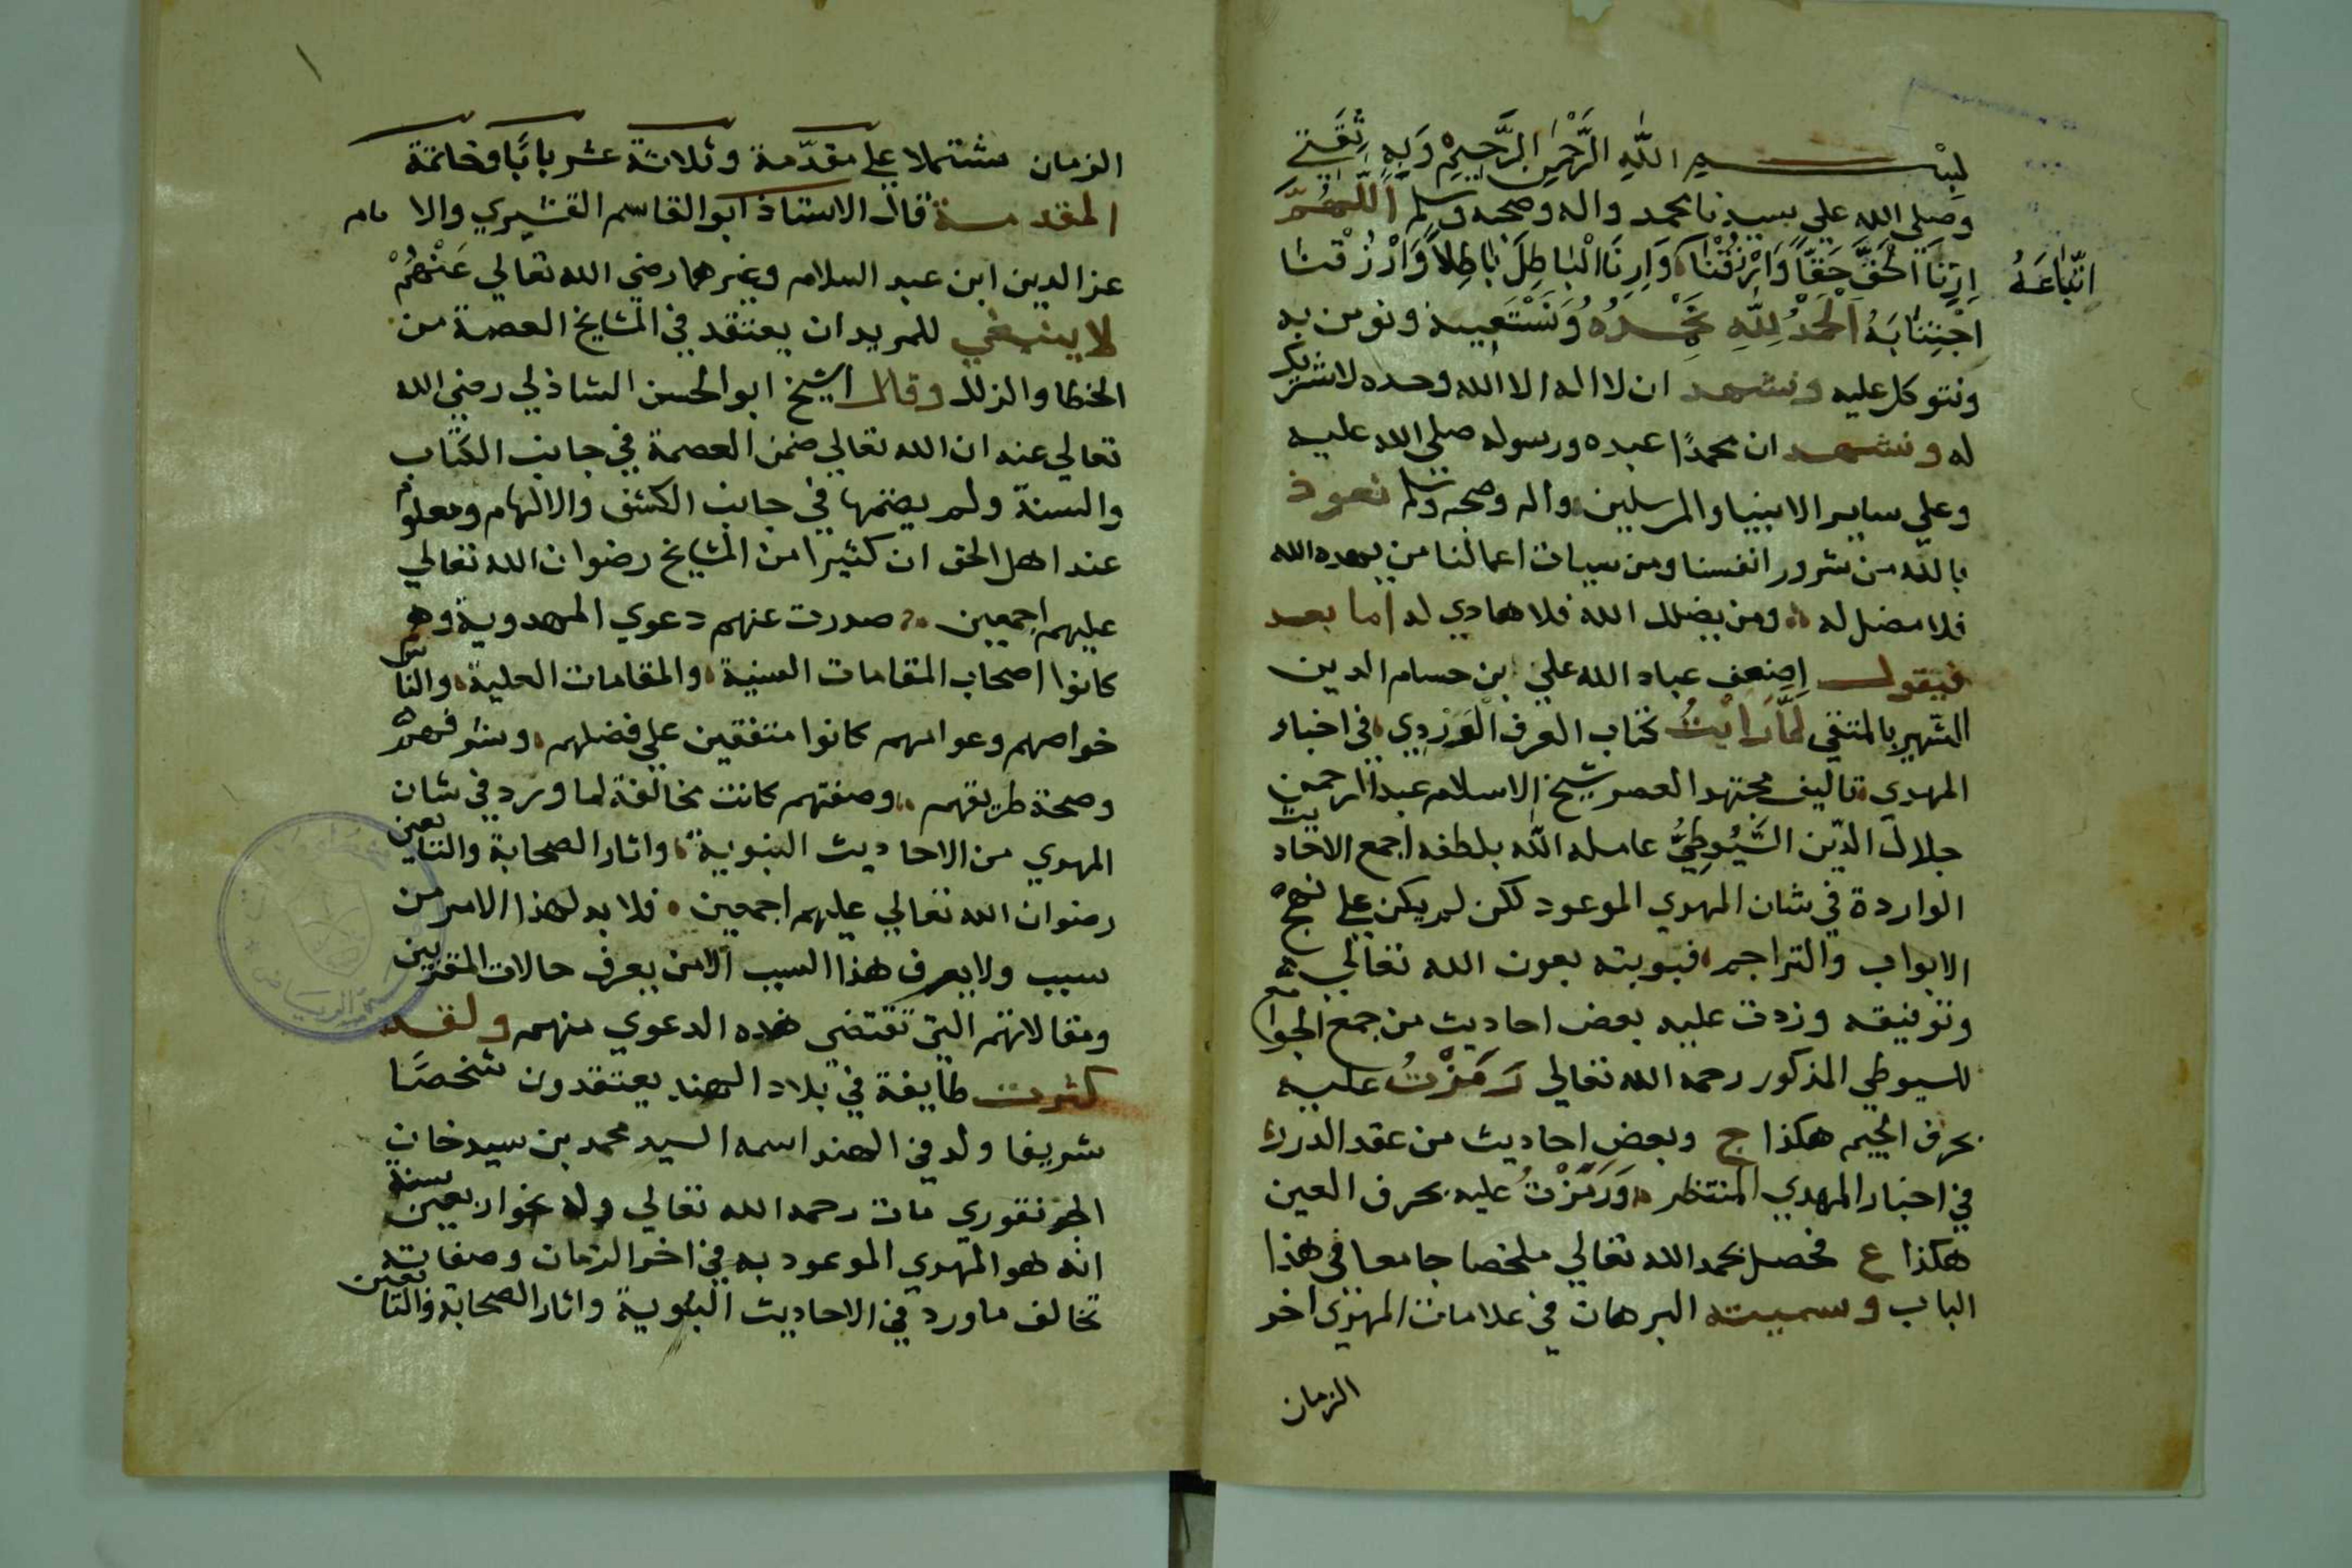 بسم الله الرحمن الرحيم وبه ثقتي
وصلى الله علي سيدنا محمد واله وصحبه وسلم اللَّهُمَّ
اَرِنَا الحَقَّ حَقًّا وَارْزُقْنَا وَاَرِنَا الْبَاطِلَ بَاطِلاً وَارْزُقْنَا
اتّبَاعَهُ
اجْتِنَابَهُ اَلْحَمْدُ لِلّهِ نَحْمَدُهُ وَنَسْتَعِينه ونومن به
ونتوكل عليه ونشهد ان لا اله الا الله وحده لا شريك
له ونشهد ان محمدًا عبده ورسوله صلي الله عليه
وعلي ساير الانبيا والمرسلين واله وصحبه وسلم نعوذ
بالله من شرور انفسنا ومن سيات اعمالنا من يهده الله
فلا مضل له ومن يضلل الله فلا هادي له اما بعد
فيقول اضعف عباد الله علي ابن حسام الدين
الشهير بالمتقي لمّا رايْتُ كتاب العرف الْوَرْدِي في اخبار
المهدي تاليف مجتهد العصر شيخ الاسلام عبد الرحمن
جلال الدّين السّيُوطِيُّ عامله اللّه بلطفه اجمع الاحاديث
الواردة في شان المهدي الموعود لكن لم يكن علي نهج
الابواب والتراجم فبوبته بعون الله تعالي
وتوفيقه وزدت عليه بعض احاديث من جمع الجوامع
للسيوطي المذكور رحمه الله تعالي رَمَزْتُ عليه
بحرف الجيم هكذا ج وبعض احاديث من عقد الدرر
في اخبار المهدي المنتظر وَرَمَزْتُ عليه بحرف العين
هكذا ع فحصل بحمد الله تعالي ملخصا جامعا في هذا
الباب وسميته البرهان في علامات المهدي اخر
الزمان
الزمان مشتملا علي مقدّمة وثلاثة عشر بابًا وخاتمة
المقدمة قال الاستاذ ابو القاسم القشيري والامام
عز الدين ابن عبد السلام وغيرهما رضي الله تعالي عَنْهُمْ
لا ينبغي للمريد ان يعتقد في المشايخ العصمة من
الخطا والزلل وقال الشيخ ابو الحسن الشاذلي رضي الله
تعالي عنه ان الله تعالي ضمن العصمة في جانب الكتاب
والسنة ولم يضمنها في جانب الكشف والالهام ومعلوم
عند اهل الحق ان كثيرا من المشايخ رضوان الله تعالي
عليهم اجمعين صدرت عنهم دعوي المهدوية وهم
كانوا اصحاب المقامات السنية والمقامات العلية والناس
خواصهم وعوامهم كانوا متفقين علي فضلهم وشرفهم
وصحة طريقهم وصفتهم كانت مخالفة لما ورد في شان
المهدي من الاحاديث النبوية واثار الصحابة والتابعين
رضوان الله تعالي عليهم اجمعين فلا بد لهذا الامر من
سبب ولا يعرف هذا السبب الا من يعرف حالات المقربين
ومقالاتهم التي تقتضي هذه الدعوي منهم ولقد
كثرت طايفة في بلاد الهند يعتقدون شخصًا
شريفا ولد في الهند اسمه السيد محمد بن سيد خان
الجونفوري مات رحمه الله تعالي وله نحو اربعين سنة
انه هو المهدي الموعود به في اخر الزمان وصفاته
تخالف ما ورد في الاحاديث النبوية واثار الصحابة والتابعين